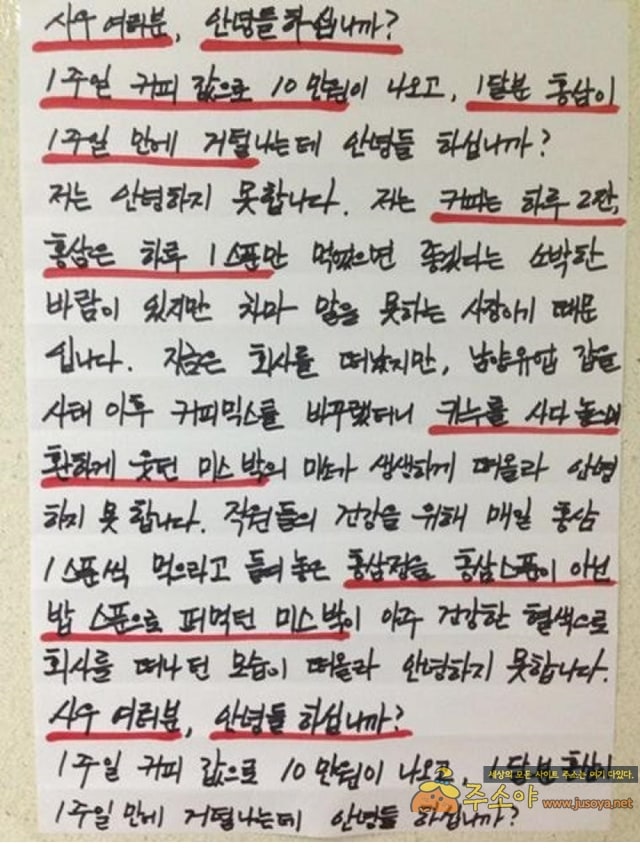 사우 여러분, 안녕들 하십니까?
1주일 커피 값으로 10만원이 나오고, 1달분 홍삼이
1주일 만에 거덜나는데 안녕들 하십니까?
저는 안녕하지 못합니다. 저는 커피는 하루 2잔,
홍삼은 하루 1스푼만 먹었으면 좋겠다는 소박한
바람이 있지만 차마 말을 못하는 사장이기 때문
입니다. 지금은 회사를 떠났지만, 남양유업 갑을
사태 이후 커피믹스를 바꾸랬더니 카누를 사다 놓으며
환하게 웃던 미스 박의 미소가 생생하게 떠올라 안녕
하지 못합니다. 직원들의 건강을 위해 매일 홍삼
1스푼씩 먹으라고 들여놓은 홍삼정을 홍삼스푼이 아닌
밥 스푼으로 퍼먹던 미스박이 아주 건강한 혈색으로
회사를 떠나던 모습이 떠올라 안녕하지 못합니다.
사우 여러분, 안녕들 하십니까?
1주일 커피 값으로 10만원이 나오고, 1달분 홍삼이
1주일 만에 거덜나는데 안녕들 하십니까?
세상의 모든 사이트 주소는 여기 다있다.
주소야 www.jusoya.net